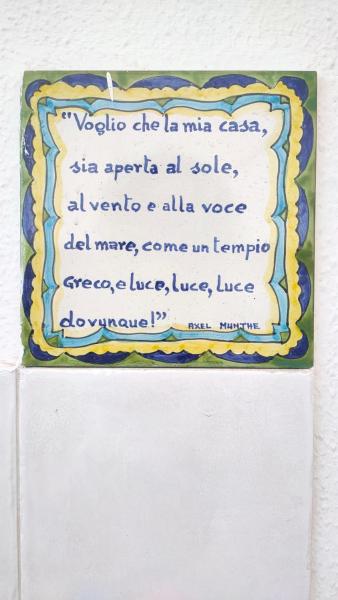 "Voglio che la mia casa,
sia aperta al sole,
al vento e alla voce
del mare, come un tempio
Greco, e luce, luce, luce
dovunque!" AXEL MUNTHE